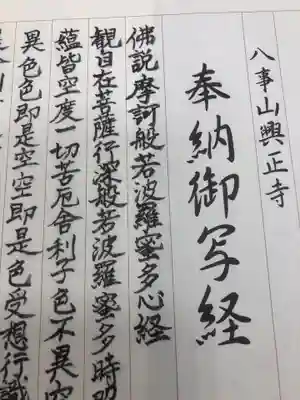 八事山興正寺
奉納御写経
佛説摩訶般若波羅蜜多心経
観自在菩薩行深般若波羅蜜多時
蘊皆空度一切苦厄舎利子色不異空
異色色即是空空即是色受想行識